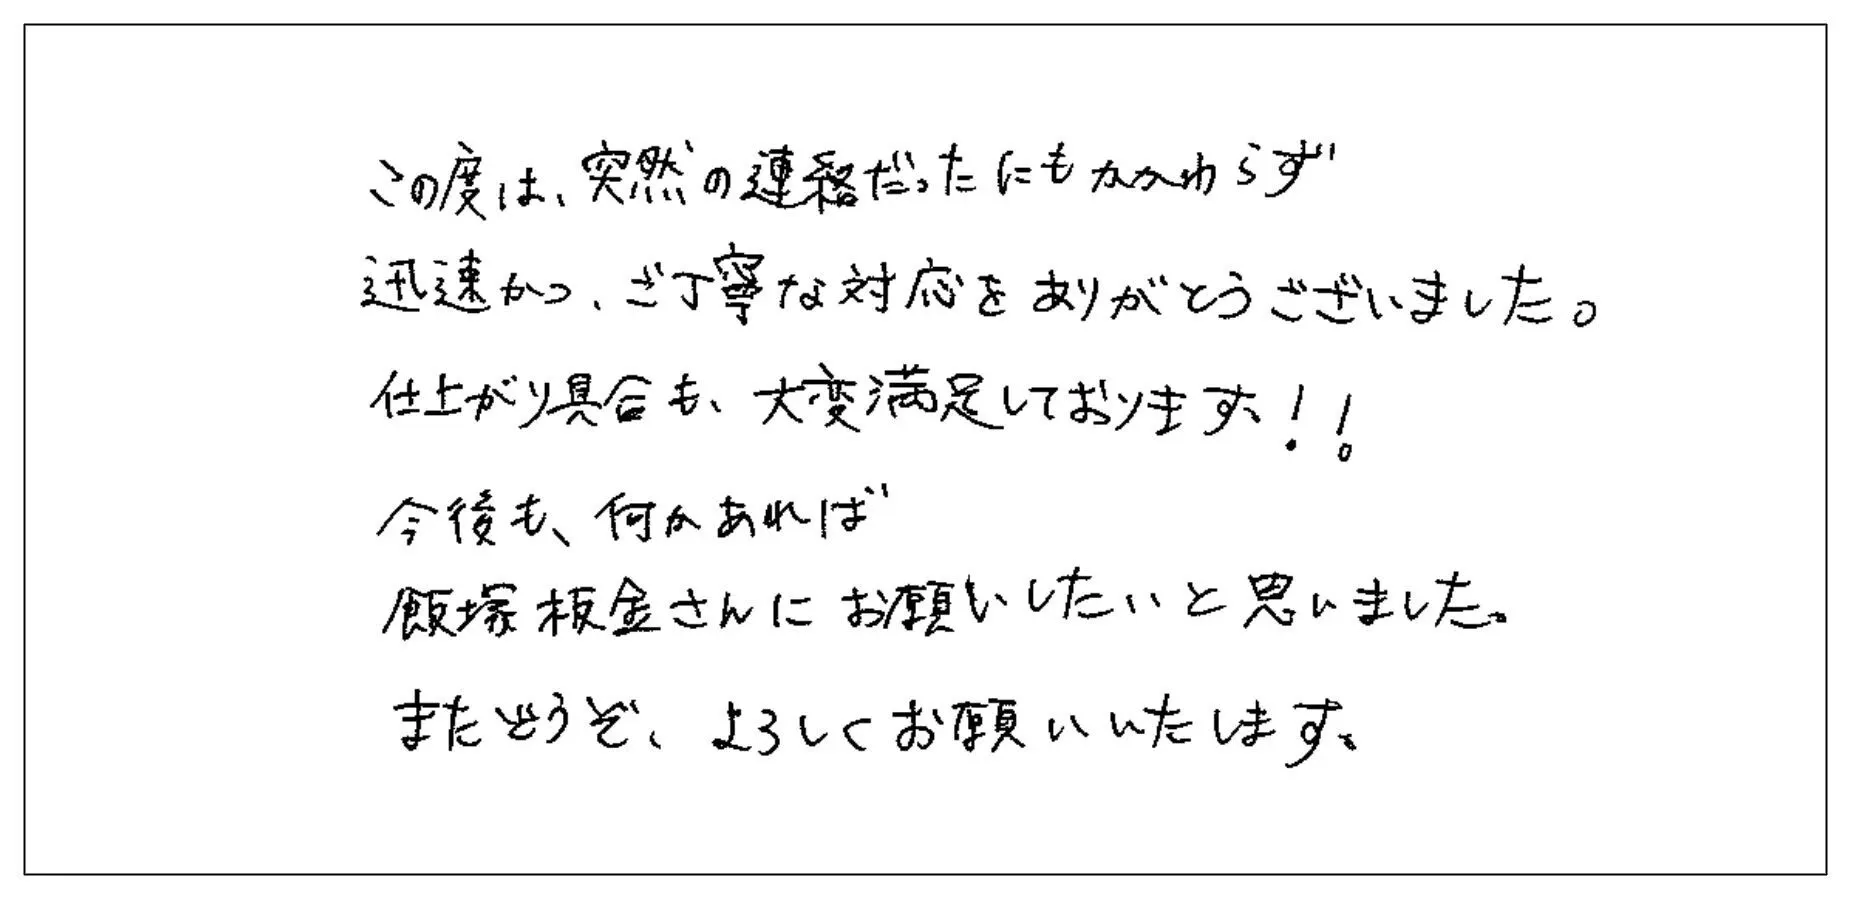 この度は、突然の連絡だったにもかかわらず
迅速かつ、ご丁寧な対応をありがとうございました。
仕上がり具合も、大変満足しております、！！
今後も、何かあれば
飯塚板金さんにお願いしたいと思いました。
またどうぞ、よろしくお願いいたします。